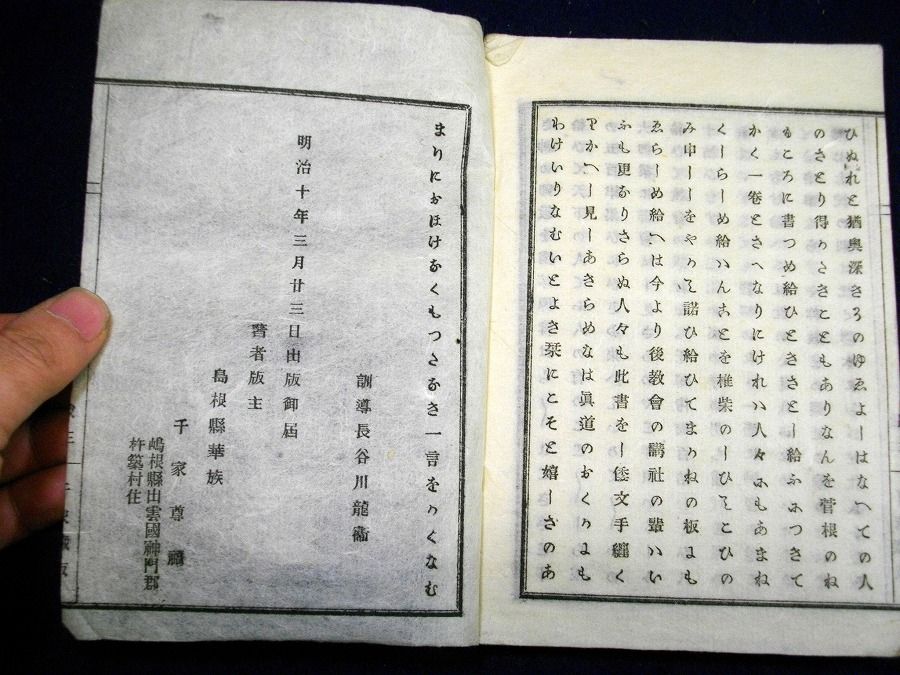 ひぬれと猶奥深きろのゆゑよしはなへての人
のさとり得かさきこともありなんを菅根のね
もころに書つめ給ひとささとし給ふにつきて
かく一巻とさへなりにけれハ人々にもあまね
くしらしめ給ハんことを椎柴のしひてこひの
み申しゝをやかて諾ひ給ひてまかねの板にも
ゑらしめ給へは今より後教會の講社の輩ハい
ふも更なりさらぬ人々も此書をし倭文手纏く
りかへし見しあきらめなは眞道のおくかにも
わけいりなむいとよき栞にこそと嬉しさのあ
まりにおほけなくもつたなき一言をかくなむ
訓導長谷川龍衞
明治十年三月廿三日出版御届
著者版主
島根縣華族
千家尊
嶋根縣出雲國神門郡
杵築村住